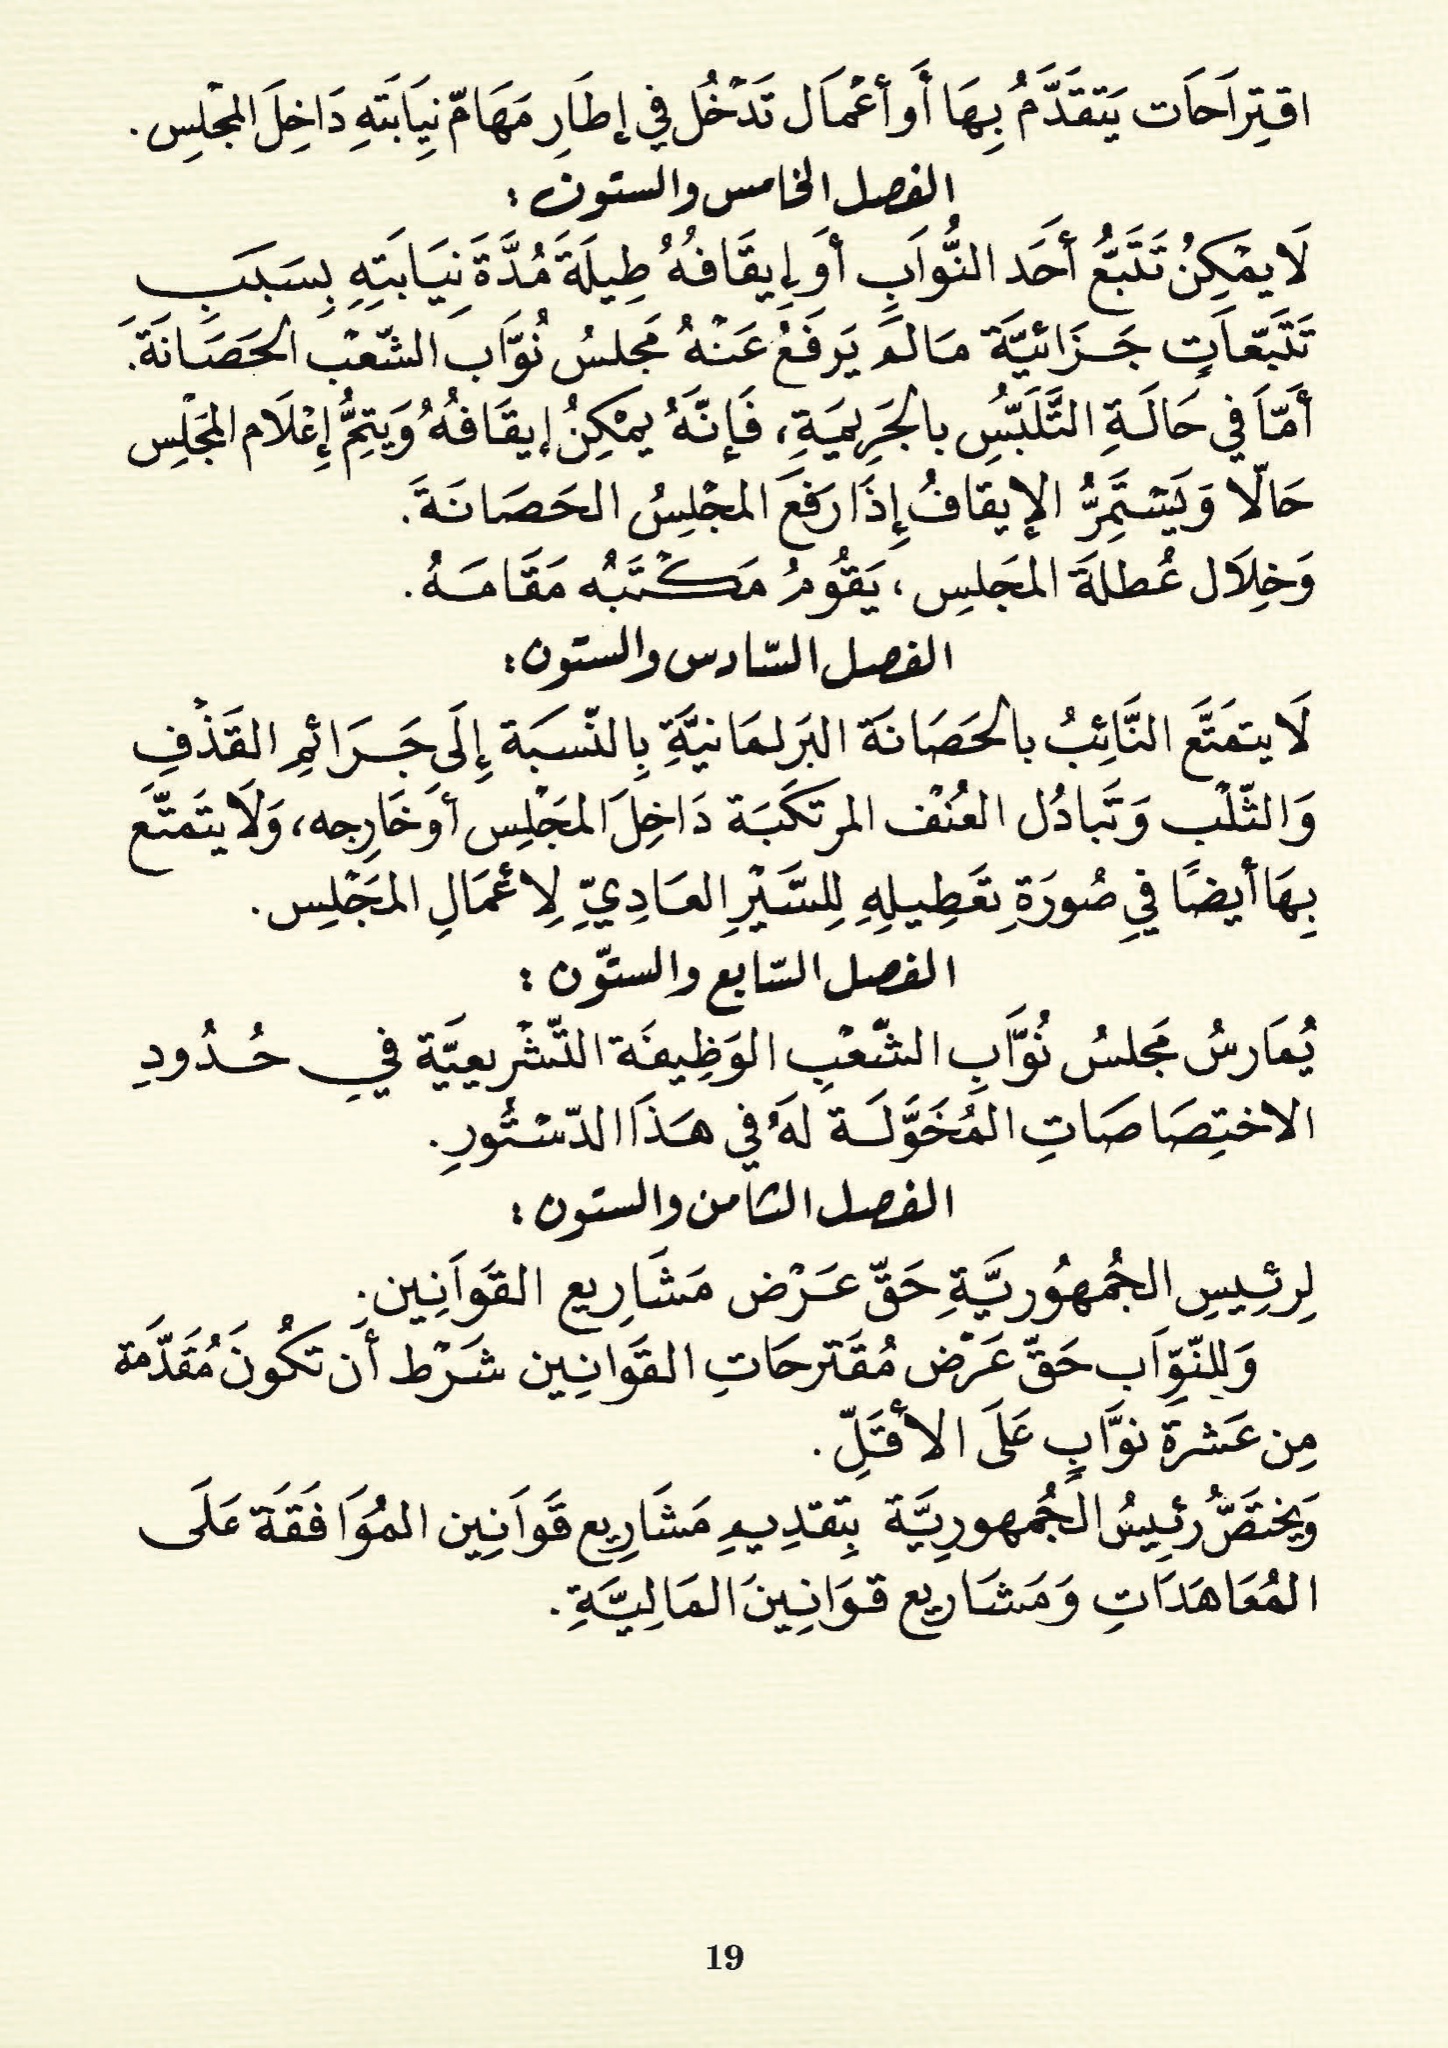 اقتِراَحَات يَتقَدَّمُ بِهَا أَو أعْمَال تَدْخُل في إطَارِ مَهَامّ نِيَابَتَهِ دَاخِلَ المجْلِسِ.
الفصل الخامس والستون :
لَا يمْكِنُ تَتَبعُّ أحَد النُّوَابِ أوَ إِيقَافهُ طِيلَةَ مُدَّةَ نِيَابَتِهِ بِسَبَبِ
تَتَبّعَاتٍ جَزَائيَّة مَا لَمَ يَرفَعُ عَنْهُ مَجلسُ نُوَّاب الشّعْب الحَصَانَةَ.
أمّاَ في حَالَةِ التَّلَبّسِ بالجَرِيمَةِ، فَإنّهُ يمْكِنُ إيقَافهُ وَيَتِمُّ إِعْلَام المَجْلِس
حَالّا وَيَسْتَمِرُّ الإيقافُ إِذَا رَفعَ المجْلِسُ الحَصَانَةَ.
وَخِلَال عُطلةَ المَجَلسِ، يَقُومُ مَكْتَبُه مَقَامَهُ.
الفصل السّادس والستون:
لَا يتمَتَّع النَّائِبُ بالحَصَانَة البَرلمَانيَّةِ بِالنّسبَة إِلَى جَرَائمِ القَذْفِ
وَالثّلْب وَتَبادُل العُنْف المرتكَبَة دَاخِلَ المَجْلِس أوَ خَارِجه، وَلَا يتَمتّع
بِهَا أيضًا فيِ صُورَةِ تعَطِيلِهِ لِلسَّيْرِ العَادِيِّ لِأعْمَالِ المَجْلِس.
الفصل السّابع والستّون :
يُمَارسُ مَجلسُ نُوَّابِ الشّعْبِ الوَظِيفَة التّشْريعيَّة فيِ حُدُودِ
الاختِصَاصَاتِ المُخَوَّلَة لهَُ في هَذَا الدّسْتُورِ.
الفصل الثامن والستون :
لِرئِيسِ الجُمهُوريَّةِ حَقّ عَرْض مَشَارِيع القَوَانِين.
وَلِلنّوّاَب حَقّ عَرْض مُقَترحَاتِ القَوَانِين شَرْط أن تكُونَ مُقَدَّمَة
مِن عَشرة نوَّابٍ عَلَى الأقَلِّ.
وَيَختَصُّ رئِيسُ الجُمهورِيَّة بِتقدِيمِ مَشَارِيع قَوَانِين المُوَافَقَة عَلَى
المُعَاهَدَاتِ وَمَشَارِيع قوَانِينَ المَالِيَّةِ.
19